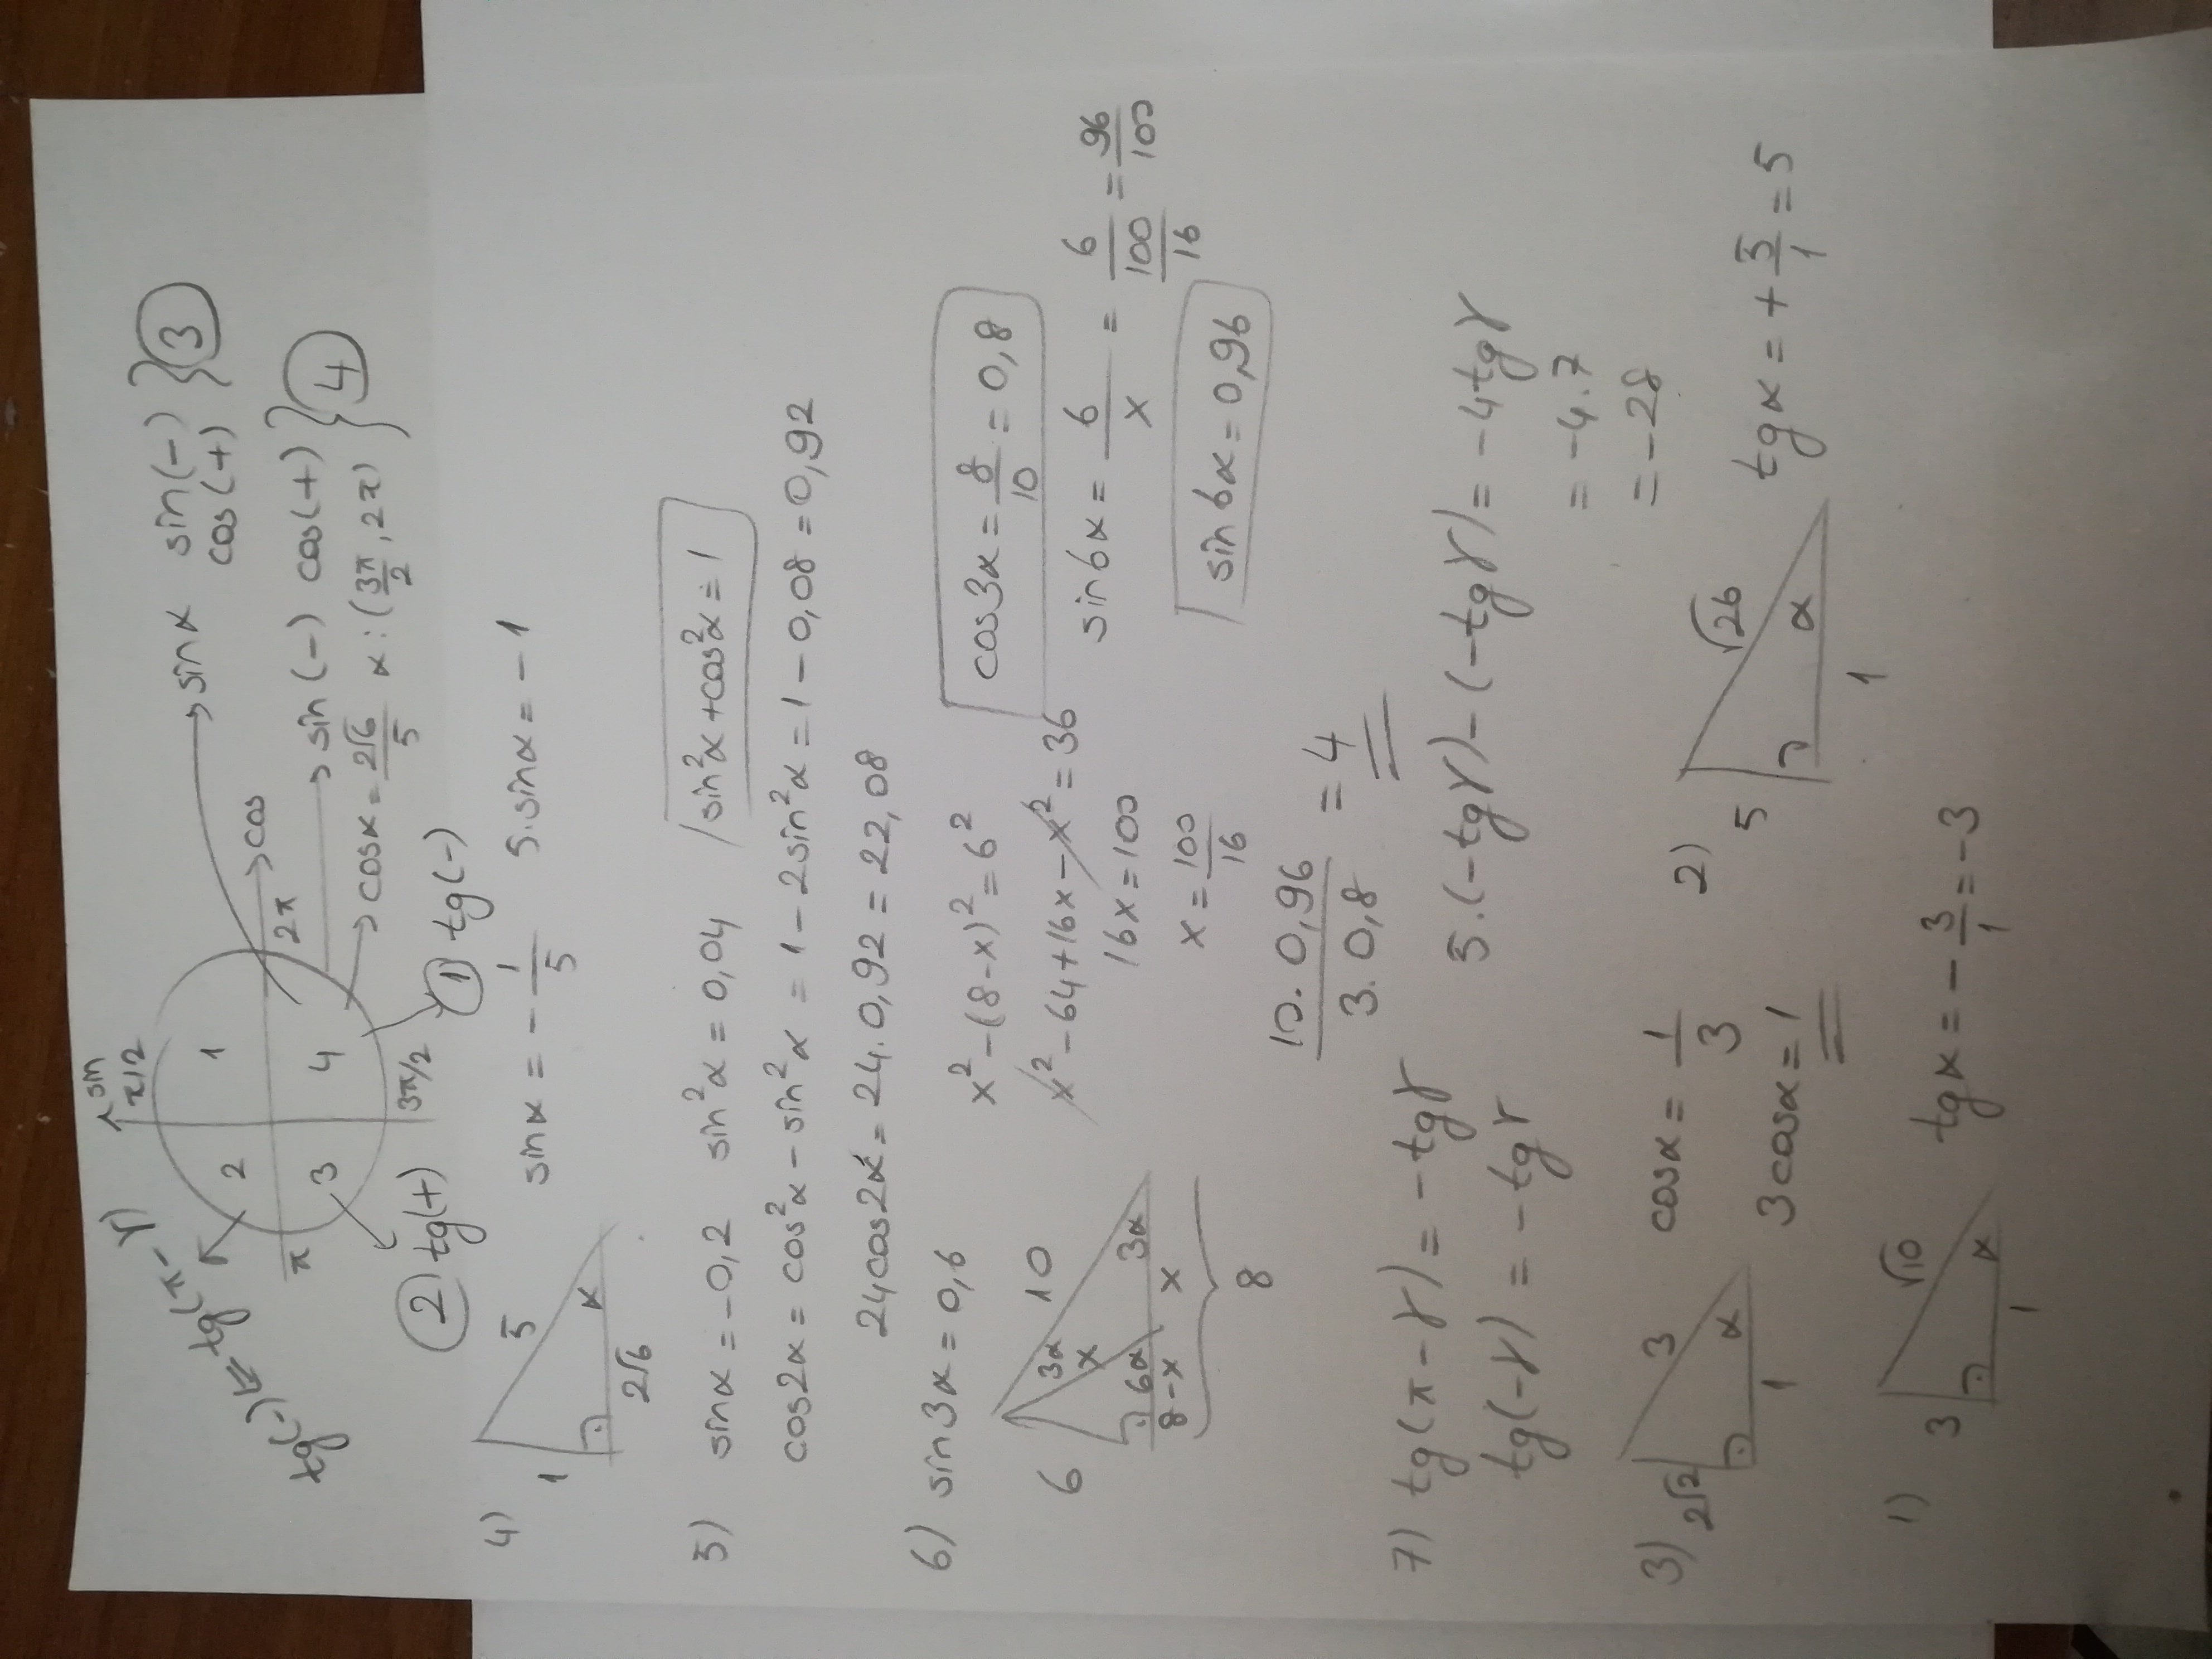 sin
π/2
1
2
3
4
π
2π
3π/2
cos
tg(-) ⇐ tg(π-γ)
sinα sin(-)
cos(+) } ③
sin(-) cos(+)
cosα = 2√6/5 α:(3π/2, 2π) } ④
② tg(+)
① tg(-)
4) 1 5 α 2√6
sinα = -1/5 5.sinα = -1
5) sinα = -0,2 sin²α = 0,04 sin²α+cos²α=1
cos2α = cos²α - sin²α = 1 - 2sin²α = 1 - 0,08 = 0,92
24cos2α = 24.0,92 = 22,08
6) sin3α = 0,6
6 10 3α x 6α 3α 8-x x 8
x²-(8-x)²=6²
x²-64+16x-x²=36
16x=100
x=100/16
cos3α = 8/10 = 0,8
sin6α = 6/x = 6/(100/16) = 96/100
sin6α = 0,96
10.0,96/3.0,8 = 4
7) tg(π-γ) = -tgγ
tg(-γ) = -tgγ
5.(-tgγ)-(-tgγ) = -4tgγ
= -4.7
= -28
3) 2√2 3 α 1
cosα = 1/3
3cosα=1
2) 5 √26 α 1
tgα = +5/1 = 5
1) 3 √10 α 1
tgα = -3/1 = -3